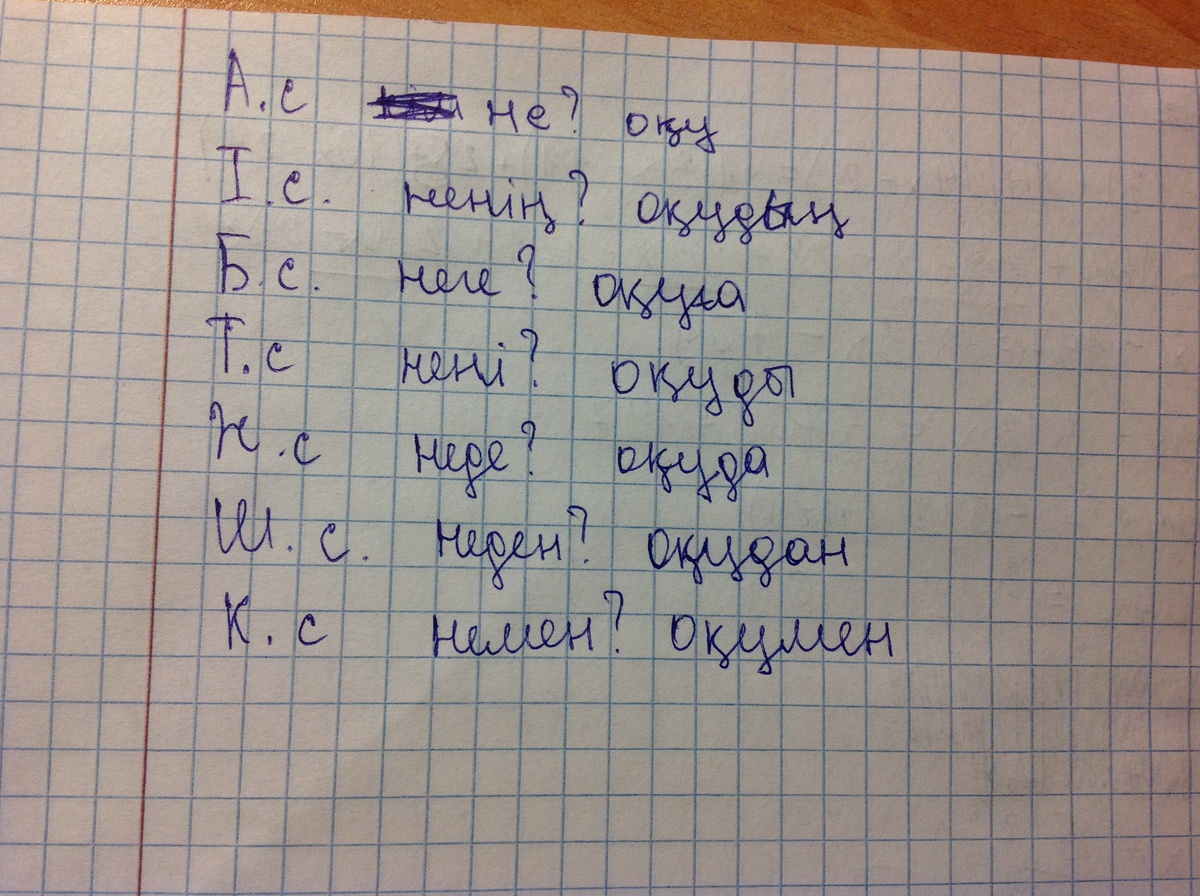 А.с не? оқу
І.с. ненің? оқудың
Б.с. неге? оқуға
Т.с нені? оқуды
Ж.с неде? оқуда
Ш.с. неден? оқудан
К.с немен? оқумен